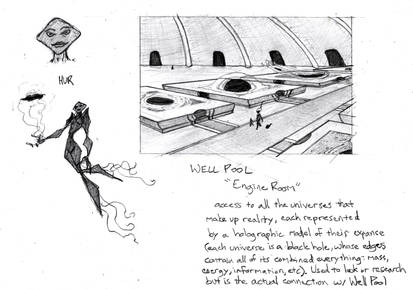 HUR
WELL POOL
"Engine Room"
access to all the universes that
make up reality, each represented
by a holographic model of their expance
(each universe is a black hole, whose edges
contain all of its combined everything: mass,
energy, information, etc). Used to look or research
but is the actual connection w/ Well Pool